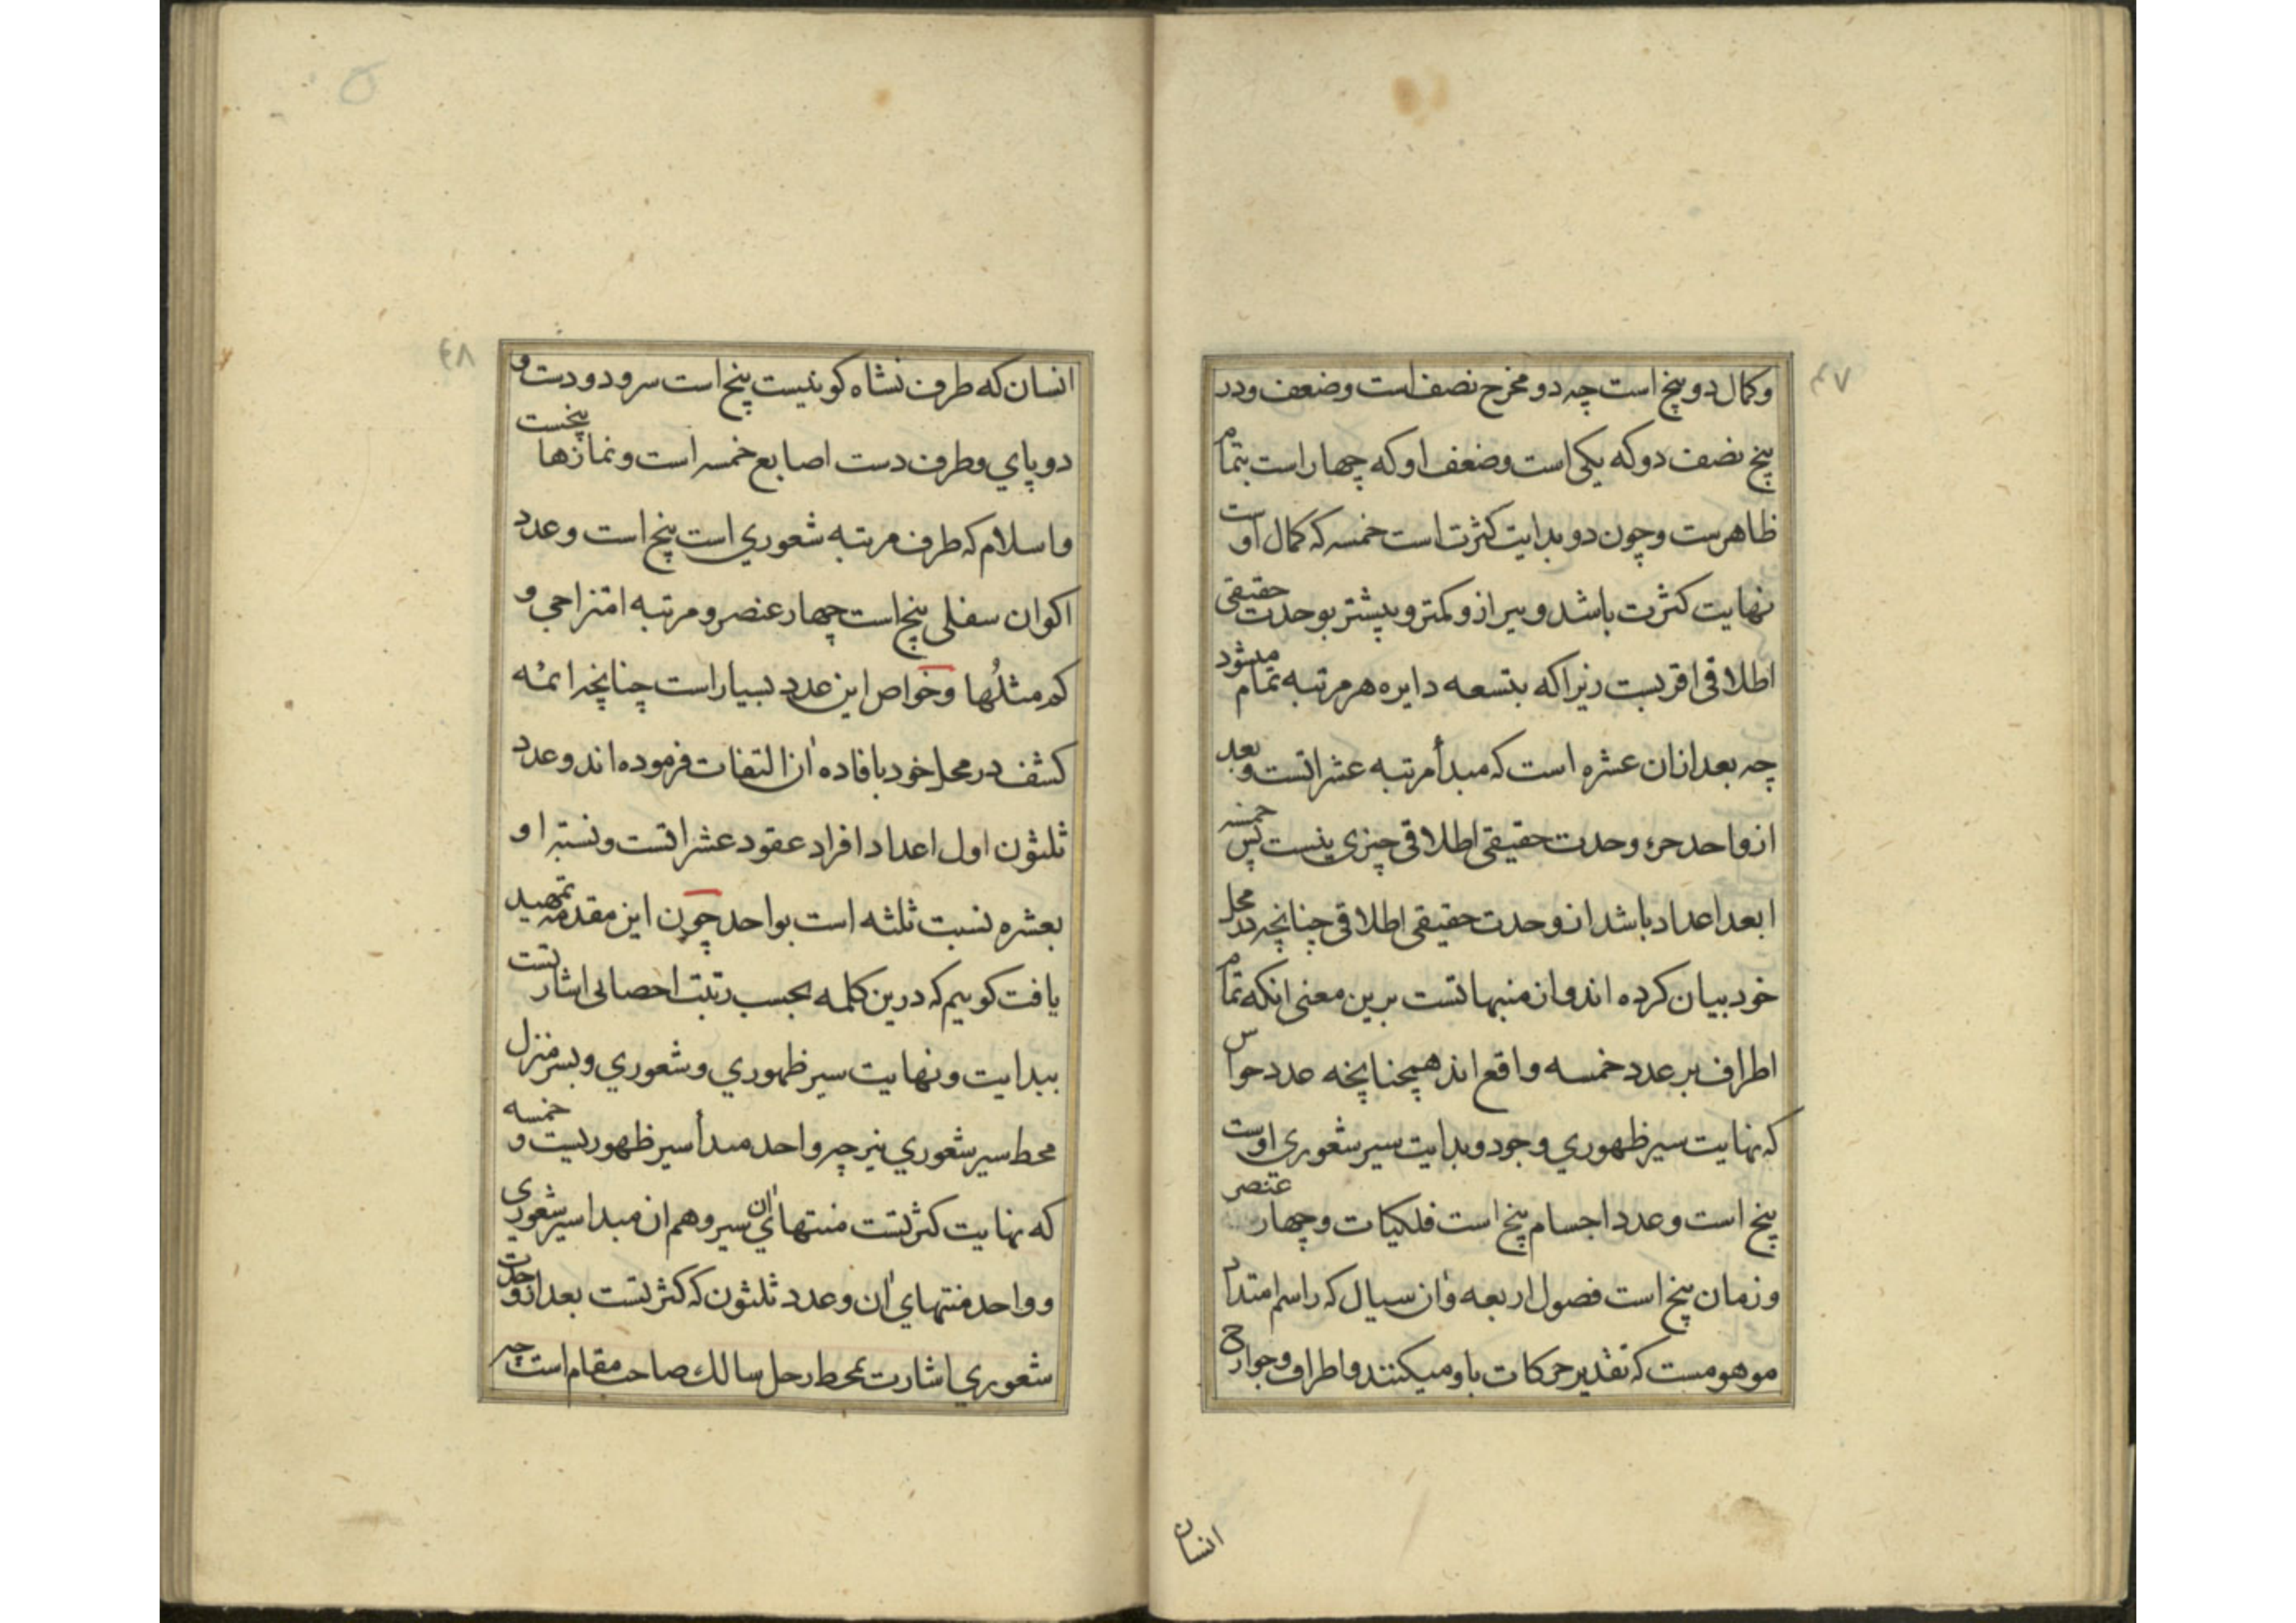 ٤٧
وکمال دو پنج است چه دو مخرج نصف است وضعف ودر
پنج نصف دو که یکی است وضعف او که چهار است بتمام
ظاهرست وچون دو بدایت کثرت است خمسه که کمال اوست
نهایت کثرت باشد و کمتر وبیشتر بوحدت حقیقی
اطلاقی اقربست زیرا که بتسعه دایره هر مرتبه تمام میشود
چه بعد ازان عشره است که مبدأ مرتبه عشراتست وبعد
از واحد جزء وحدت حقیقی اطلاقی چیزی نیست پس خمسه
ابعد اعداد باشد از وحدت حقیقی اطلاقی چنانچه در محل
خود بیان کرده اند واز منبهاتست برین معنی انکه تمام
اطراف بر عدد خمسه واقع اند همچنانچه عدد حواس
که نهایت سیر ظهوري وجود وبدایت سیر شعوری اوست
پنج است وعدد اجسام پنج است فلکیات وچهار عنصر
وزمان پنج است فصول اربعه وآن سیال که راسم امتداد
موهومست که تقدیر حرکات باو میکنند واطراف وجوارح
انسان
٤٨
انسان که طرف نشاه کونیست پنج است سر ودو دست و
دو پاي وطرف دست اصابع خمسه است ونمازها پنجست
واسلام که طرف مرتبه شعوري است پنج است وعدد
اکوان سفلی پنج است چهار عنصر ومرتبه امتزاجي و
کم مثلُها وخواص این عدد بسیار است چنانچه ائمه
کشف در محل خود بافاده آن التفات فرموده اند وعدد
ثلثون اول اعداد افراد عقود عشراتست ونسبت او
بعشره نسبت ثلثه است بواحد چون این مقدمه تمهید
یافت کوییم که درین کلمه بحسب رتبت احصائی اشارتست
ببدایت ونهایت سیر ظهوري وشعوري وبسر منزل
محط سیر شعوري نیز چه واحد مبدأ سیر ظهوریست و خمسه
که نهایت کثرتست منتهاي آن سیر وهم ان مبدا سیر شعوری
وواحد منتهاي آن وعدد ثلثون که کثرتست بعد از وحدت
شعوري اشارت بمحط رحل سالك صاحب مقام است چه